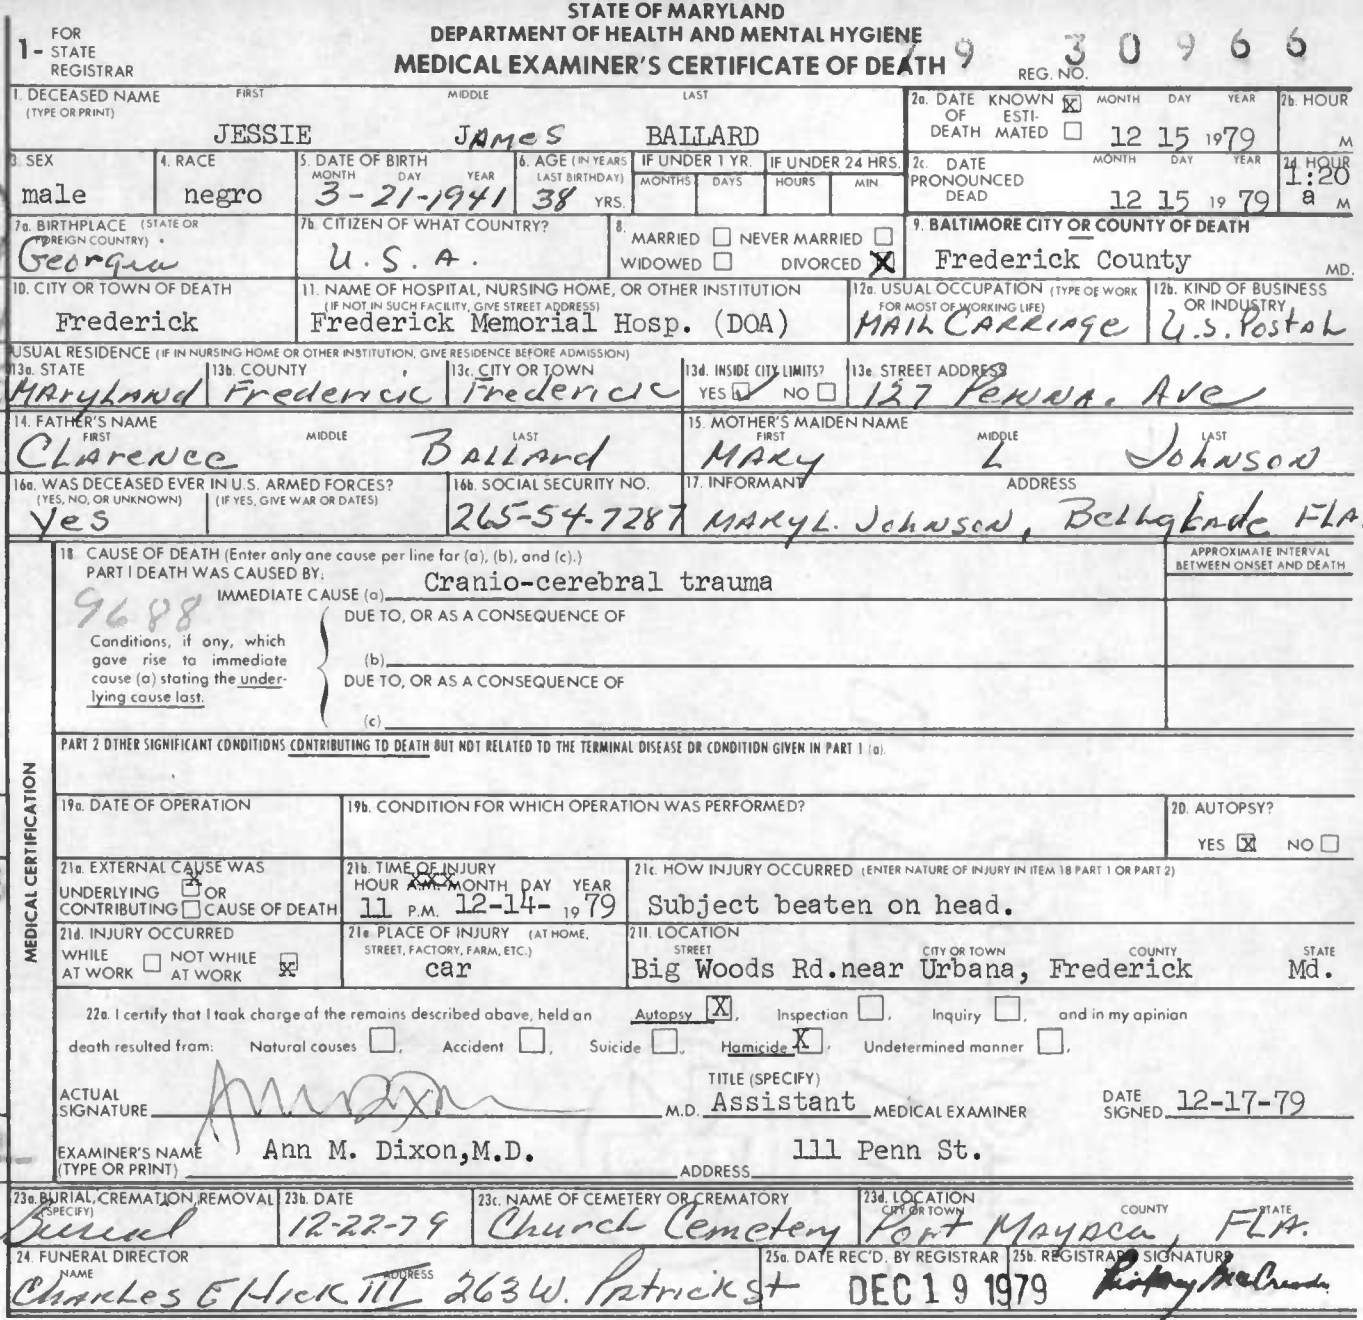 STATE OF MARYLAND
DEPARTMENT OF HEALTH AND MENTAL HYGIENE
MEDICAL EXAMINER'S CERTIFICATE OF DEATH
1- FOR STATE REGISTRAR
REG. NO. 79 30966
1. DECEASED NAME (TYPE OR PRINT) FIRST MIDDLE LAST
JESSIE JAMES BALLARD
2a. DATE OF DEATH KNOWN X ESTIMATED MONTH DAY YEAR
12 15 1979
2b. HOUR M
3. SEX
male
4. RACE
negro
5. DATE OF BIRTH MONTH DAY YEAR
3-21-1941
6. AGE (IN YEARS LAST BIRTHDAY)
38 YRS.
IF UNDER 1 YR. MONTHS DAYS
IF UNDER 24 HRS. HOURS MIN.
2c. DATE PRONOUNCED DEAD MONTH DAY YEAR
12 15 19 79
2d HOUR
1:20 a M
7a. BIRTHPLACE (STATE OR FOREIGN COUNTRY)
Georgia
7b. CITIZEN OF WHAT COUNTRY?
U.S.A.
8. MARRIED NEVER MARRIED
WIDOWED DIVORCED X
9. BALTIMORE CITY OR COUNTY OF DEATH
Frederick County MD.
10. CITY OR TOWN OF DEATH
Frederick
11. NAME OF HOSPITAL, NURSING HOME, OR OTHER INSTITUTION
(IF NOT IN SUCH FACILITY, GIVE STREET ADDRESS)
Frederick Memorial Hosp. (DOA)
12a. USUAL OCCUPATION (TYPE OF WORK FOR MOST OF WORKING LIFE)
MAIL CARRIAGE
12b. KIND OF BUSINESS OR INDUSTRY
U.S. Postal
USUAL RESIDENCE (IF IN NURSING HOME OR OTHER INSTITUTION, GIVE RESIDENCE BEFORE ADMISSION)
13a. STATE
Maryland
13b. COUNTY
Frederick
13c. CITY OR TOWN
Frederick
13d. INSIDE CITY LIMITS?
YES ✓ NO
13e. STREET ADDRESS
127 Penna. Ave
14. FATHER'S NAME FIRST MIDDLE LAST
Clarence Ballard
15. MOTHER'S MAIDEN NAME FIRST MIDDLE LAST
Mary L Johnson
16a. WAS DECEASED EVER IN U.S. ARMED FORCES?
(YES, NO, OR UNKNOWN) (IF YES, GIVE WAR OR DATES)
Yes
16b. SOCIAL SECURITY NO.
265-54-7287
17. INFORMANT ADDRESS
Mary L. Johnson, Bellglade FLA.
18 CAUSE OF DEATH (Enter only one cause per line for (a), (b), and (c).)
PART I DEATH WAS CAUSED BY:
IMMEDIATE CAUSE (a) Cranio-cerebral trauma
APPROXIMATE INTERVAL BETWEEN ONSET AND DEATH
9688
DUE TO, OR AS A CONSEQUENCE OF
Conditions, if any, which
gave rise to immediate
cause (a) stating the under-
lying cause last.
(b)
DUE TO, OR AS A CONSEQUENCE OF
(c)
PART 2 OTHER SIGNIFICANT CONDITIONS CONTRIBUTING TO DEATH BUT NOT RELATED TO THE TERMINAL DISEASE OR CONDITION GIVEN IN PART 1 (a).
MEDICAL CERTIFICATION
19a. DATE OF OPERATION
19b. CONDITION FOR WHICH OPERATION WAS PERFORMED?
20. AUTOPSY?
YES X NO
21a. EXTERNAL CAUSE WAS
UNDERLYING X OR
CONTRIBUTING CAUSE OF DEATH
21b. TIME OF INJURY
HOUR A.M. MONTH DAY YEAR
11 P.M. 12-14- 1979
21c. HOW INJURY OCCURRED (ENTER NATURE OF INJURY IN ITEM 18 PART 1 OR PART 2)
Subject beaten on head.
21d. INJURY OCCURRED
WHILE AT WORK NOT WHILE AT WORK X
21e PLACE OF INJURY (AT HOME, STREET, FACTORY, FARM, ETC.)
car
21f. LOCATION STREET CITY OR TOWN COUNTY STATE
Big Woods Rd.near Urbana, Frederick Md.
22a. I certify that I took charge of the remains described above, held an Autopsy X, Inspection, Inquiry, and in my opinion
death resulted from: Natural causes, Accident, Suicide, Homicide X, Undetermined manner.
ACTUAL SIGNATURE M.D. TITLE (SPECIFY) Assistant MEDICAL EXAMINER DATE SIGNED 12-17-79
EXAMINER'S NAME (TYPE OR PRINT) Ann M. Dixon,M.D. ADDRESS 111 Penn St.
23a. BURIAL, CREMATION, REMOVAL (SPECIFY)
Burial
23b. DATE
12-22-79
23c. NAME OF CEMETERY OR CREMATORY
Church Cemetery
23d. LOCATION CITY OR TOWN COUNTY STATE
Port Mayaca, FLA.
24. FUNERAL DIRECTOR NAME ADDRESS
Charles E Hick III 263 W. Patrick St
25a. DATE REC'D. BY REGISTRAR
DEC 19 1979
25b. REGISTRAR'S SIGNATURE